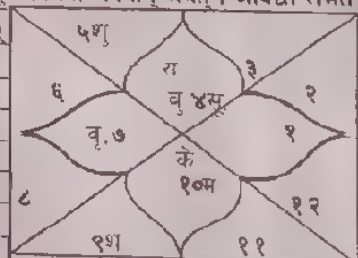 ५शु
रा
३
६
बु ४सू
२
वृ.७
१
के
१०म
८
१२
९श
११